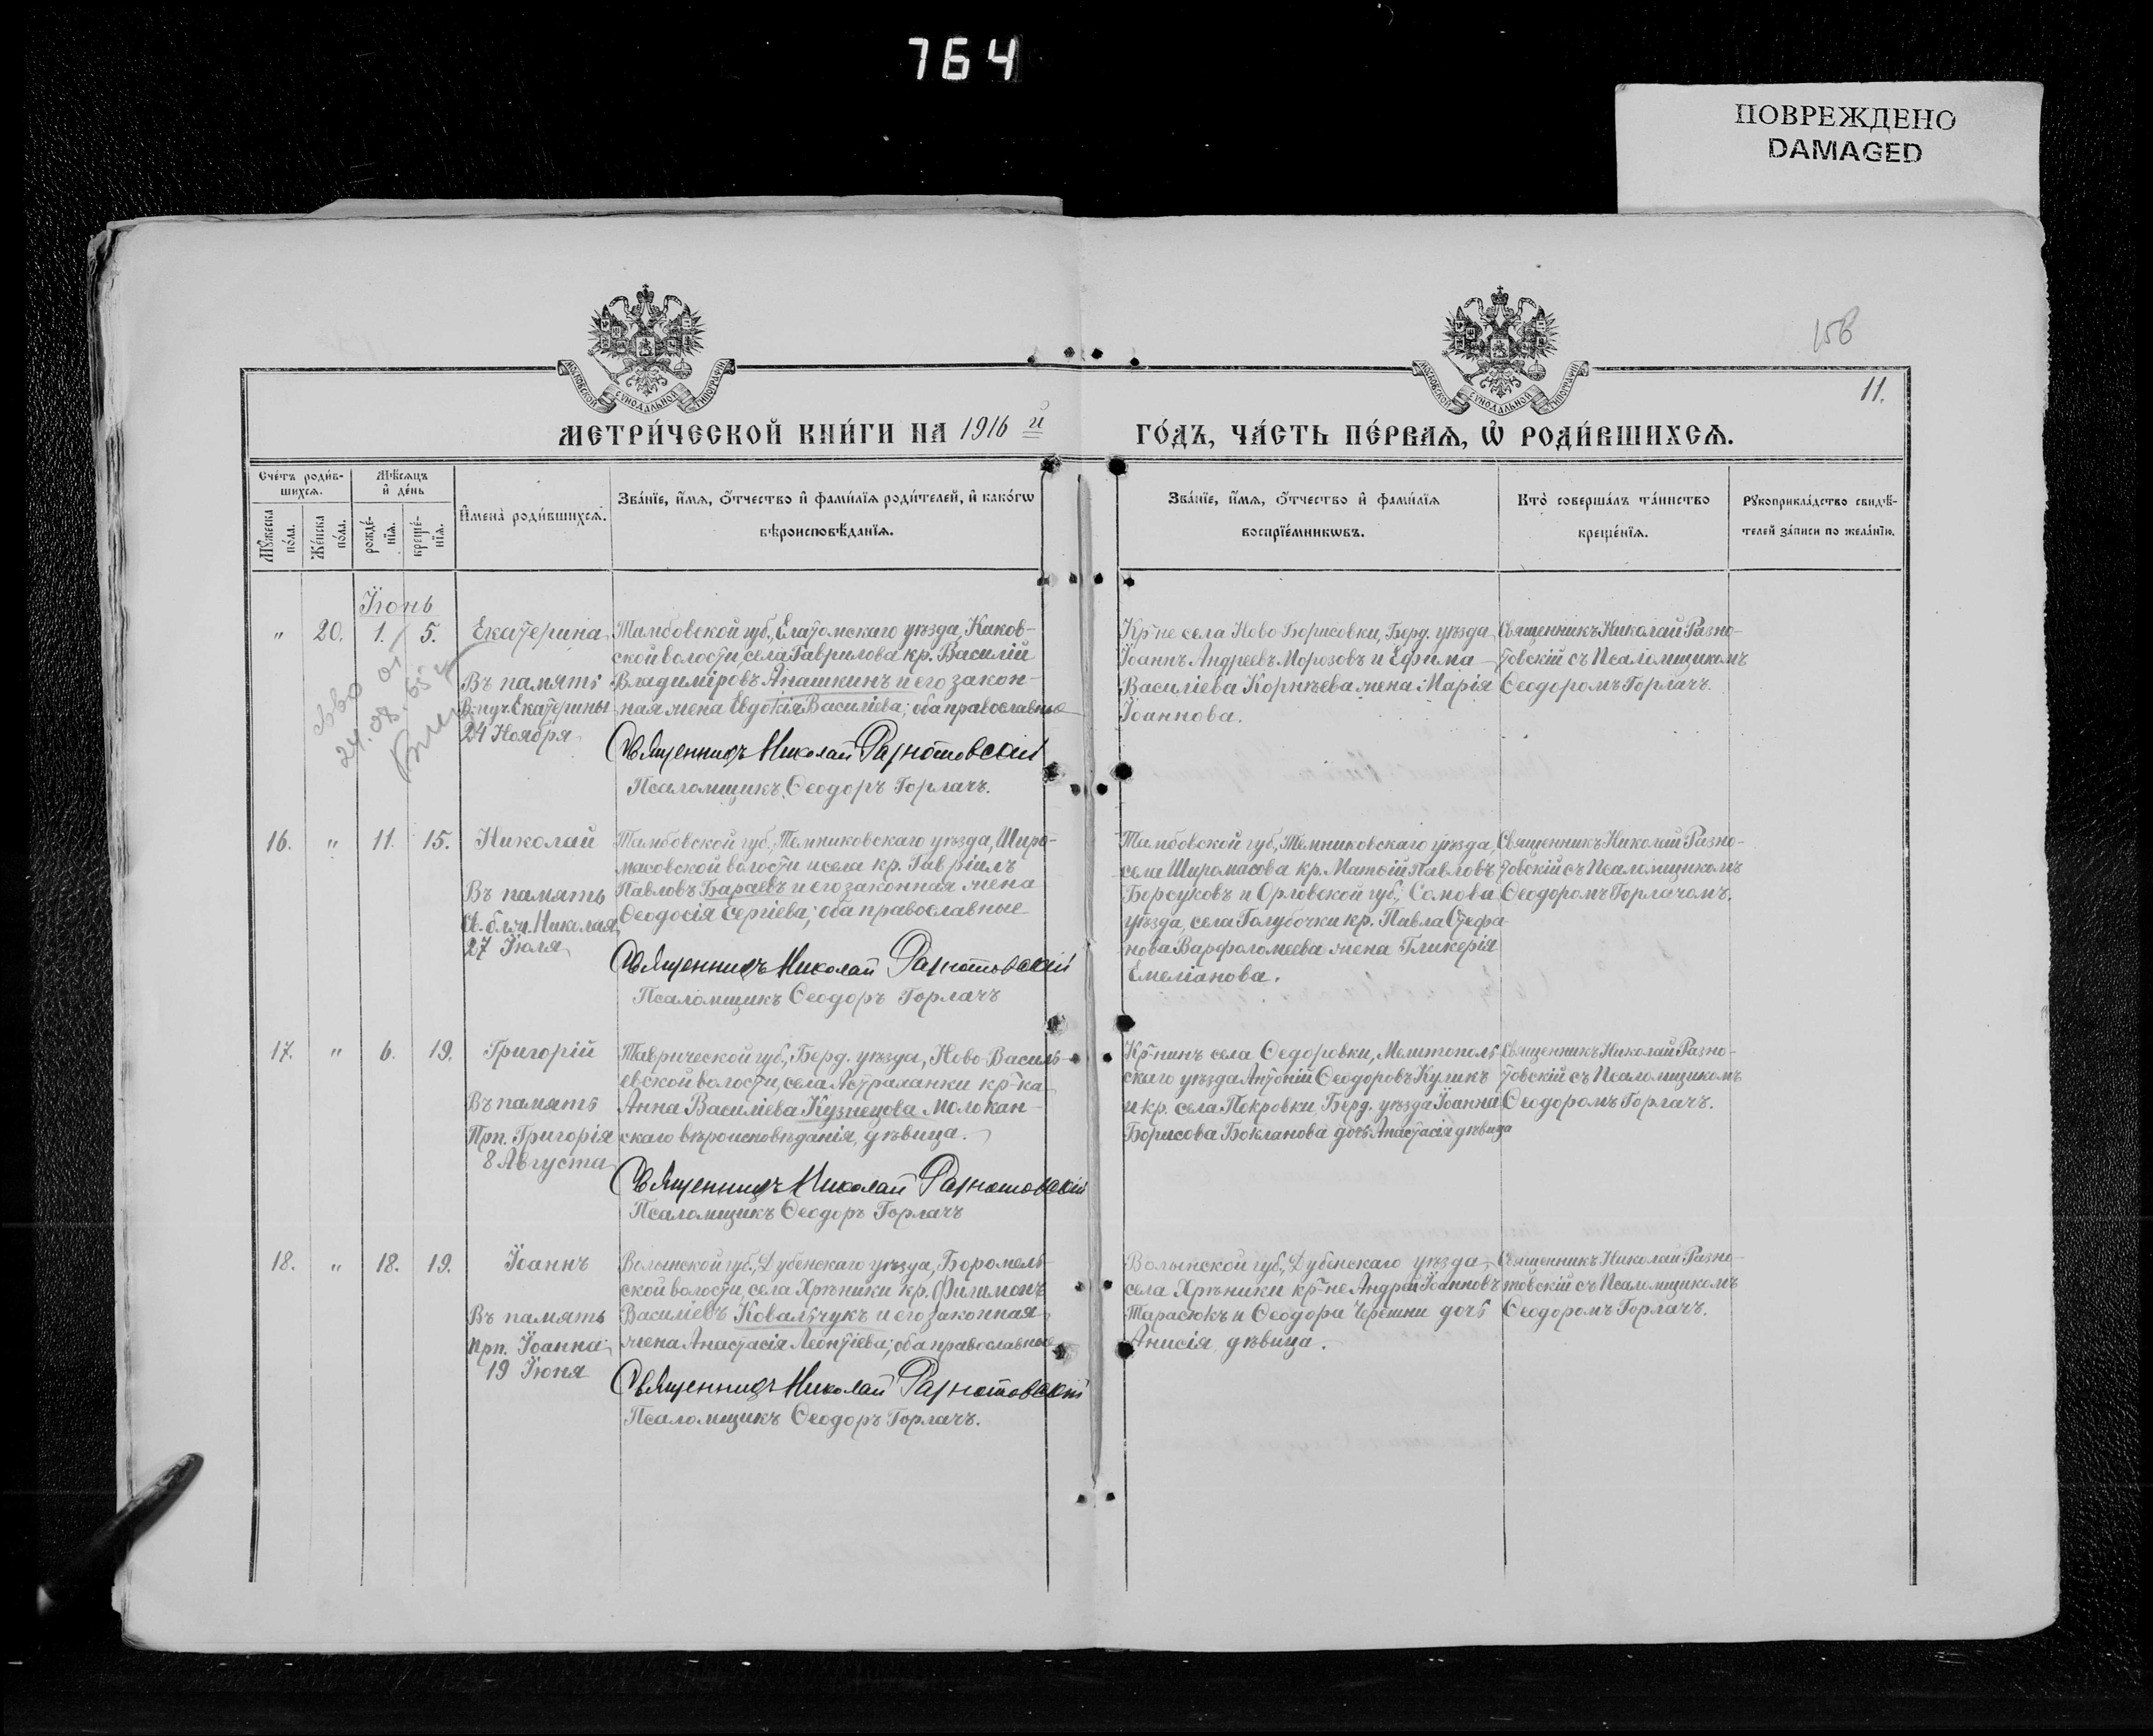 764
ПОВРЕЖДЕНО
DAMAGED
156
11.
МОСКОВСКОЙ СУНОДАЛЬНОЙ ТИПОГРАФІИ
МОСКОВСКОЙ СУНОДАЛЬНОЙ ТИПОГРАФІИ
МЕТРИ́ЧЕСКОЙ КНИ́ГИ НА 1916 й ГО́ДЪ, ЧА́СТЬ ПЕ́РВАѦ, Ѡ҆ РОДИ́ВШИХСѦ.
Сче́тъ роди́в-
шихсѧ.
Мѣ́сѧцъ
и҆ де́нь
Мꙋ́жеска
по́ла.
Же́нска
по́ла.
рожде́-
нїѧ.
креще́-
нїѧ.
И҆мена̀ роди́вшихсѧ.
Зва́нїе, и҆́мѧ, ѻ҆́тчество и҆ фами́лїѧ роди́телей, и҆ како́гѡ
вѣроисповѣ́данїѧ.
Зва́нїе, и҆́мѧ, ѻ҆́тчество и҆ фами́лїѧ
воспрїе́мникѡвъ.
Кто̀ соверша́лъ та́инство
креще́нїѧ.
Рꙋкоприкла́дство свидѣ́-
телей за́писи по жела́нїю.
Іюнь
" 20. 1. 5. Екатерина
Въ память
В-муч. Екатерины
24 Ноября
24.08.65
Тамбовской губ., Елатомскаго уѣзда, Каков-
ской волости, села Гаврилова кр. Василій
Владиміровъ Анашкинъ и его закон-
ная жена Евдокія Василіева; оба православные
Священникъ Николай Разнотовскій
Псаломщикъ Ѳеодоръ Горлачъ.
Кр-не села Ново-Борисовки, Берд. уѣзда
Іоаннъ Андреевъ Морозовъ и Ефима
Василіева Корнѣева жена Марія
Іоаннова.
Священникъ Николай Разно-
товскій съ Псаломщикомъ
Ѳеодоромъ Горлачъ.
16. " 11. 15. Николай
Въ память
Св. блж. Николая
27 Іюля
Тамбовской губ., Темниковскаго уѣзда, Широ-
масовской волости и села кр. Гавріилъ
Павловъ Бараевъ и его законная жена
Ѳеодосія Сергіева; оба православные
Священникъ Николай Разнотовскій
Псаломщикъ Ѳеодоръ Горлачъ
Тамбовской губ., Темниковскаго уѣзда,
села Широмасова кр. Матѳій Павловъ
Борсуковъ и Орловской губ.,
уѣзда, села Голубочки кр. Павла Стефа-
нова Варфоломеева жена Гликерія
Емеліанова.
Священникъ Николай Разно-
товскій съ Псаломщикомъ
Ѳеодоромъ Горлачомъ.
17. " 6. 19. Григорій
Въ память
Прп. Григорія
8 Августа
Таврической губ., Берд. уѣзда, Ново-Василь-
евской волости, села Астраханки кр-ка
Анна Василіева Кузнецова молокан-
скаго вѣроисповѣданія, дѣвица.
Священникъ Николай Разнотовскій
Псаломщикъ Ѳеодоръ Горлачъ
Кр-нинъ села Ѳедоровки, Мелитополь
скаго уѣзда Антоній Ѳеодоровъ Куликъ
и кр. села Покровки, Берд. уѣзда Іоанна
Борисова Бокланова дочь Анастасія дѣвица
Священникъ Николай Разно-
товскій съ Псаломщикомъ
Ѳеодоромъ Горлачъ.
18. " 18. 19. Іоаннъ
Въ память
прп. Іоанна
19 Іюня
Волынской губ., Дубенскаго уѣзда, Боромель-
ской волости, села Хрѣники кр. Филимонъ
Василіевъ Ковальчукъ и его законная
жена Анастасія Леонтіева; оба православные
Священникъ Николай Разнотовскій
Псаломщикъ Ѳеодоръ Горлачъ.
Волынской губ., Дубенскаго уѣзда,
села Хрѣники кр-не Андрей Іоанновъ
Тарасюкъ и Ѳеодора Черешни дочь
Анисія, дѣвица.
Священникъ Николай Разно-
товскій съ Псаломщикомъ
Ѳеодоромъ Горлачъ.